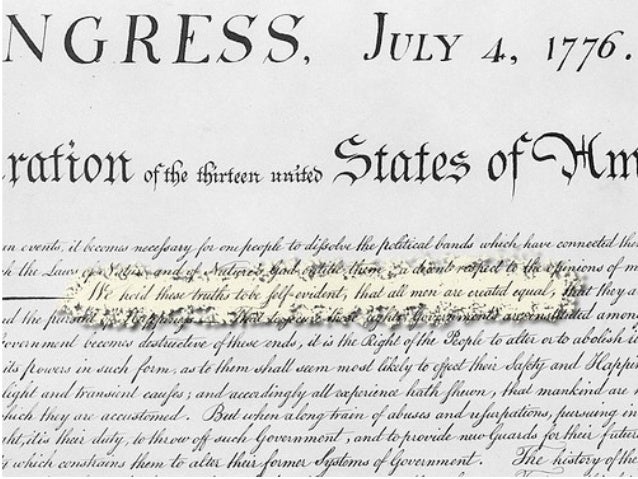 NGRESS, JULY 4, 1776.
ration of the thirteen united States of Am
events, it becomes neceſsary for one people to diſsolve the political bands which have connected
the Laws of Nature and of Nature's God entitle them, a decent respect to the opinions of m
We hold these truths to be ſelf-evident, that all men are created equal, that they a
the pursuit of Happineſs
Government becomes destructive of these ends, it is the Right of the People to alter or to abolish
its powers in such form, as to them shall seem most likely to effect their Safety and Happin
light and transient cauſes; and accordingly all experience hath ſhewn, that mankind are
which they are accustomed. But when a long train of abuses and uſurpations, pursuing in
it is their duty, to throw off such Government, and to provide new Guards for their futur
which constrains them to alter their former Systems of Government. The history of the